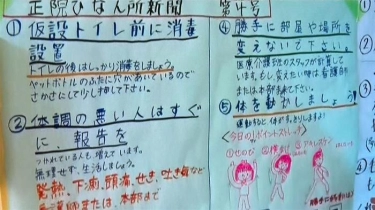 正院ひなん所新聞 第4号
① 仮設トイレ前に消毒
設置
トイレの後はしっかり消毒をしましょう。
ペットボトルのふたに穴があいているので
さかさにして少し押して下さい。
② 体調の悪い人はすぐ
に、報告を
つかれている人も、増えています。
無理せず、生活しましょう。
発熱、下痢、頭痛、せき、吐き気など
看護師または、本部まで
④ 勝手に部屋や場所を
変えないで下さい。
医療介護班のスタッフが計算して
います。もし変えたい時は看護師
または本部まで
⑤ 体を動かしましょう
運動すると体がすっきりしますよ!
〈今日の1ポイントストレッチ〉
①せのび